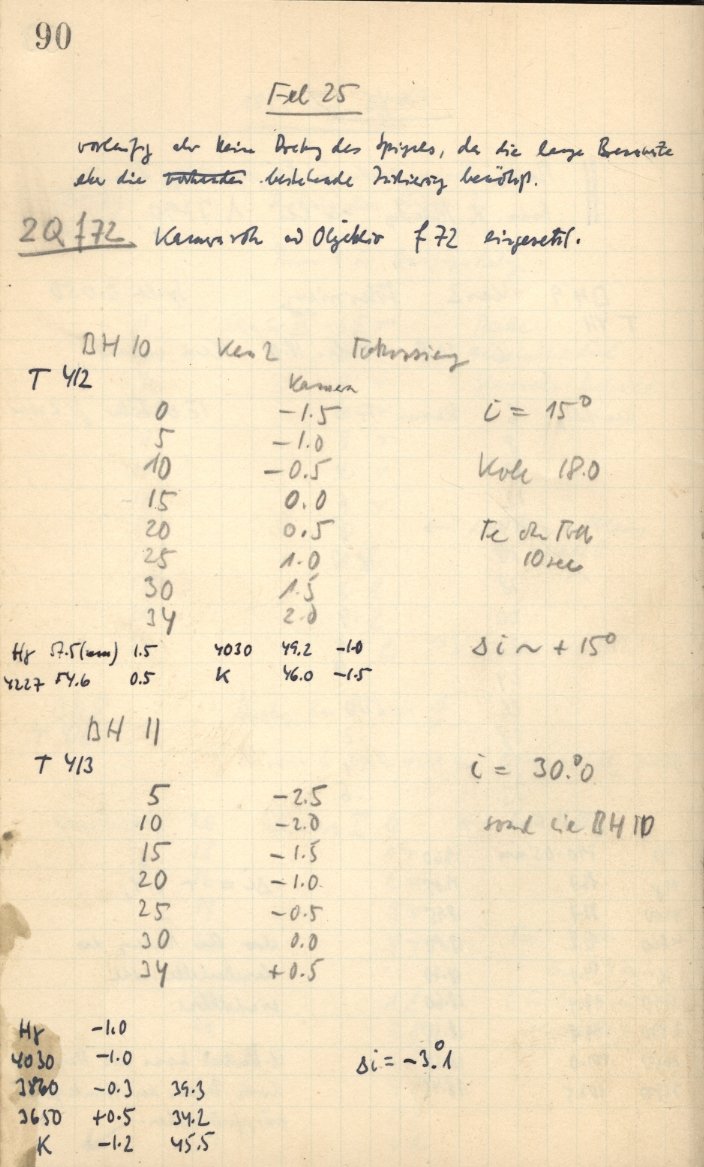 90
Feb 25
vorläufig aber keine Drehung des Spiegels, da die lange Brennweite
aber die vorhanden bestehende Justierung benötigt.
2Q f72 Kamerarohr und Objektiv f 72 eingesetzt.
BH 10 Fokussierung
T 412 Kamera
0 -1.5 i = 15°
5 -1.0
10 -0.5 18.0
15 0.0
20 0.5 Fe
25 1.0 10 sec
30 1.5
34 2.0
Hγ 57.5 (mm) 1.5 4030 49.2 -1.0 Δi ~ + 15°
4227 54.6 0.5 K 46.0 -1.5
BH 11
T 413 i = 30.°0
5 -2.5
10 -2.0 sonst wie BH 10
15 -1.5
20 -1.0
25 -0.5
30 0.0
34 +0.5
Hγ -1.0
4030 -1.0 Δi = -3.°1
3860 -0.3 39.3
3650 +0.5 34.2
K -1.2 45.5